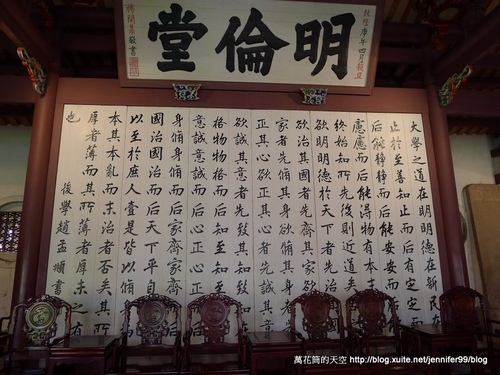 明倫堂
庚午四月穀旦
敬書
大學之道在明明德在新民在
止於至善知止而后有定定而
后能靜靜而后能安安而后能
慮慮而后能得物有本末事有
終始知所先後則近道矣古之
欲明明德於天下者先治其國
欲治其國者先齊其家欲齊其
家者先脩其身欲脩其身者先
正其心欲正其心者先誠其意
欲誠其意者先致其知致知在
格物物格而后知至知至而后
意誠意誠而后心正心正而后
身脩身脩而后家齊家齊而后
國治國治而后天下平自天子
以至於庶人壹是皆以脩身為
本其本亂而末治者否矣其所
厚者薄而其所薄者厚未之有
也 後學趙孟頫書
萬花筒的天空 http://blog.xuite.net/jennifer99/blog